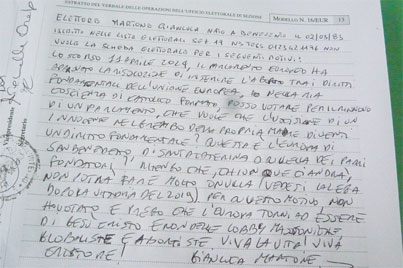 ESTRATTO DEL VERBALE DELLE OPERAZIONI DELL'UFFICIO ELETTORALE DI SEZIONE
MODELLO N. 16/EUR. 13
ELETTORE MARTONE GIANLUCA NATO A BENEVENTO IL 02/05/83
ISCRITTO NELLE LISTE ELETTORALI SEZ 19 N°
VUOLE LA SCHEDA ELETTORALE PER I SEGUENTI MOTIVI:
LO SCORSO 11 APRILE 2024, IL PARLAMENTO EUROPEO HA
LA RISOLUZIONE DI INSERIRE L'ABORTO TRA I DIRITTI
FONDAMENTALI DELL'UNIONE EUROPEA, IO NELLA MIA
COSCIENZA DI CATTOLICO POSSO VOTARE PER IL RINNOVO
DI UN PARLAMENTO, CHE VUOLE CHE L'UCCISIONE DI UN
INNOCENTE NEL GREMBO DELLA PROPRIA MADRE DIVENTI
UN DIRITTO FONDAMENTALE? QUESTA È L'EUROPA DI
SAN BENEDETTO, DI SANTA CATERINA O QUELLA DEI PADRI
FONDATORI? RITENGO CHE, CHIUNQUE CI ANDRÀ,
NON POTRÀ FARE MOLTO O NULLA (VEDESI LA LEGA
DOPO LA VITTORIA DEL 2019) PER QUESTO MOTIVO NON
HO VOTATO E PREGO CHE L'EUROPA TORNI AD ESSERE
DI GESÙ CRISTO E NON DELLE LOBBY MASSONICHE
GLOBALISTE E ABORTISTE. VIVA LA VITA! VIVA
CRISTO RE!
GIANLUCA MARTONE